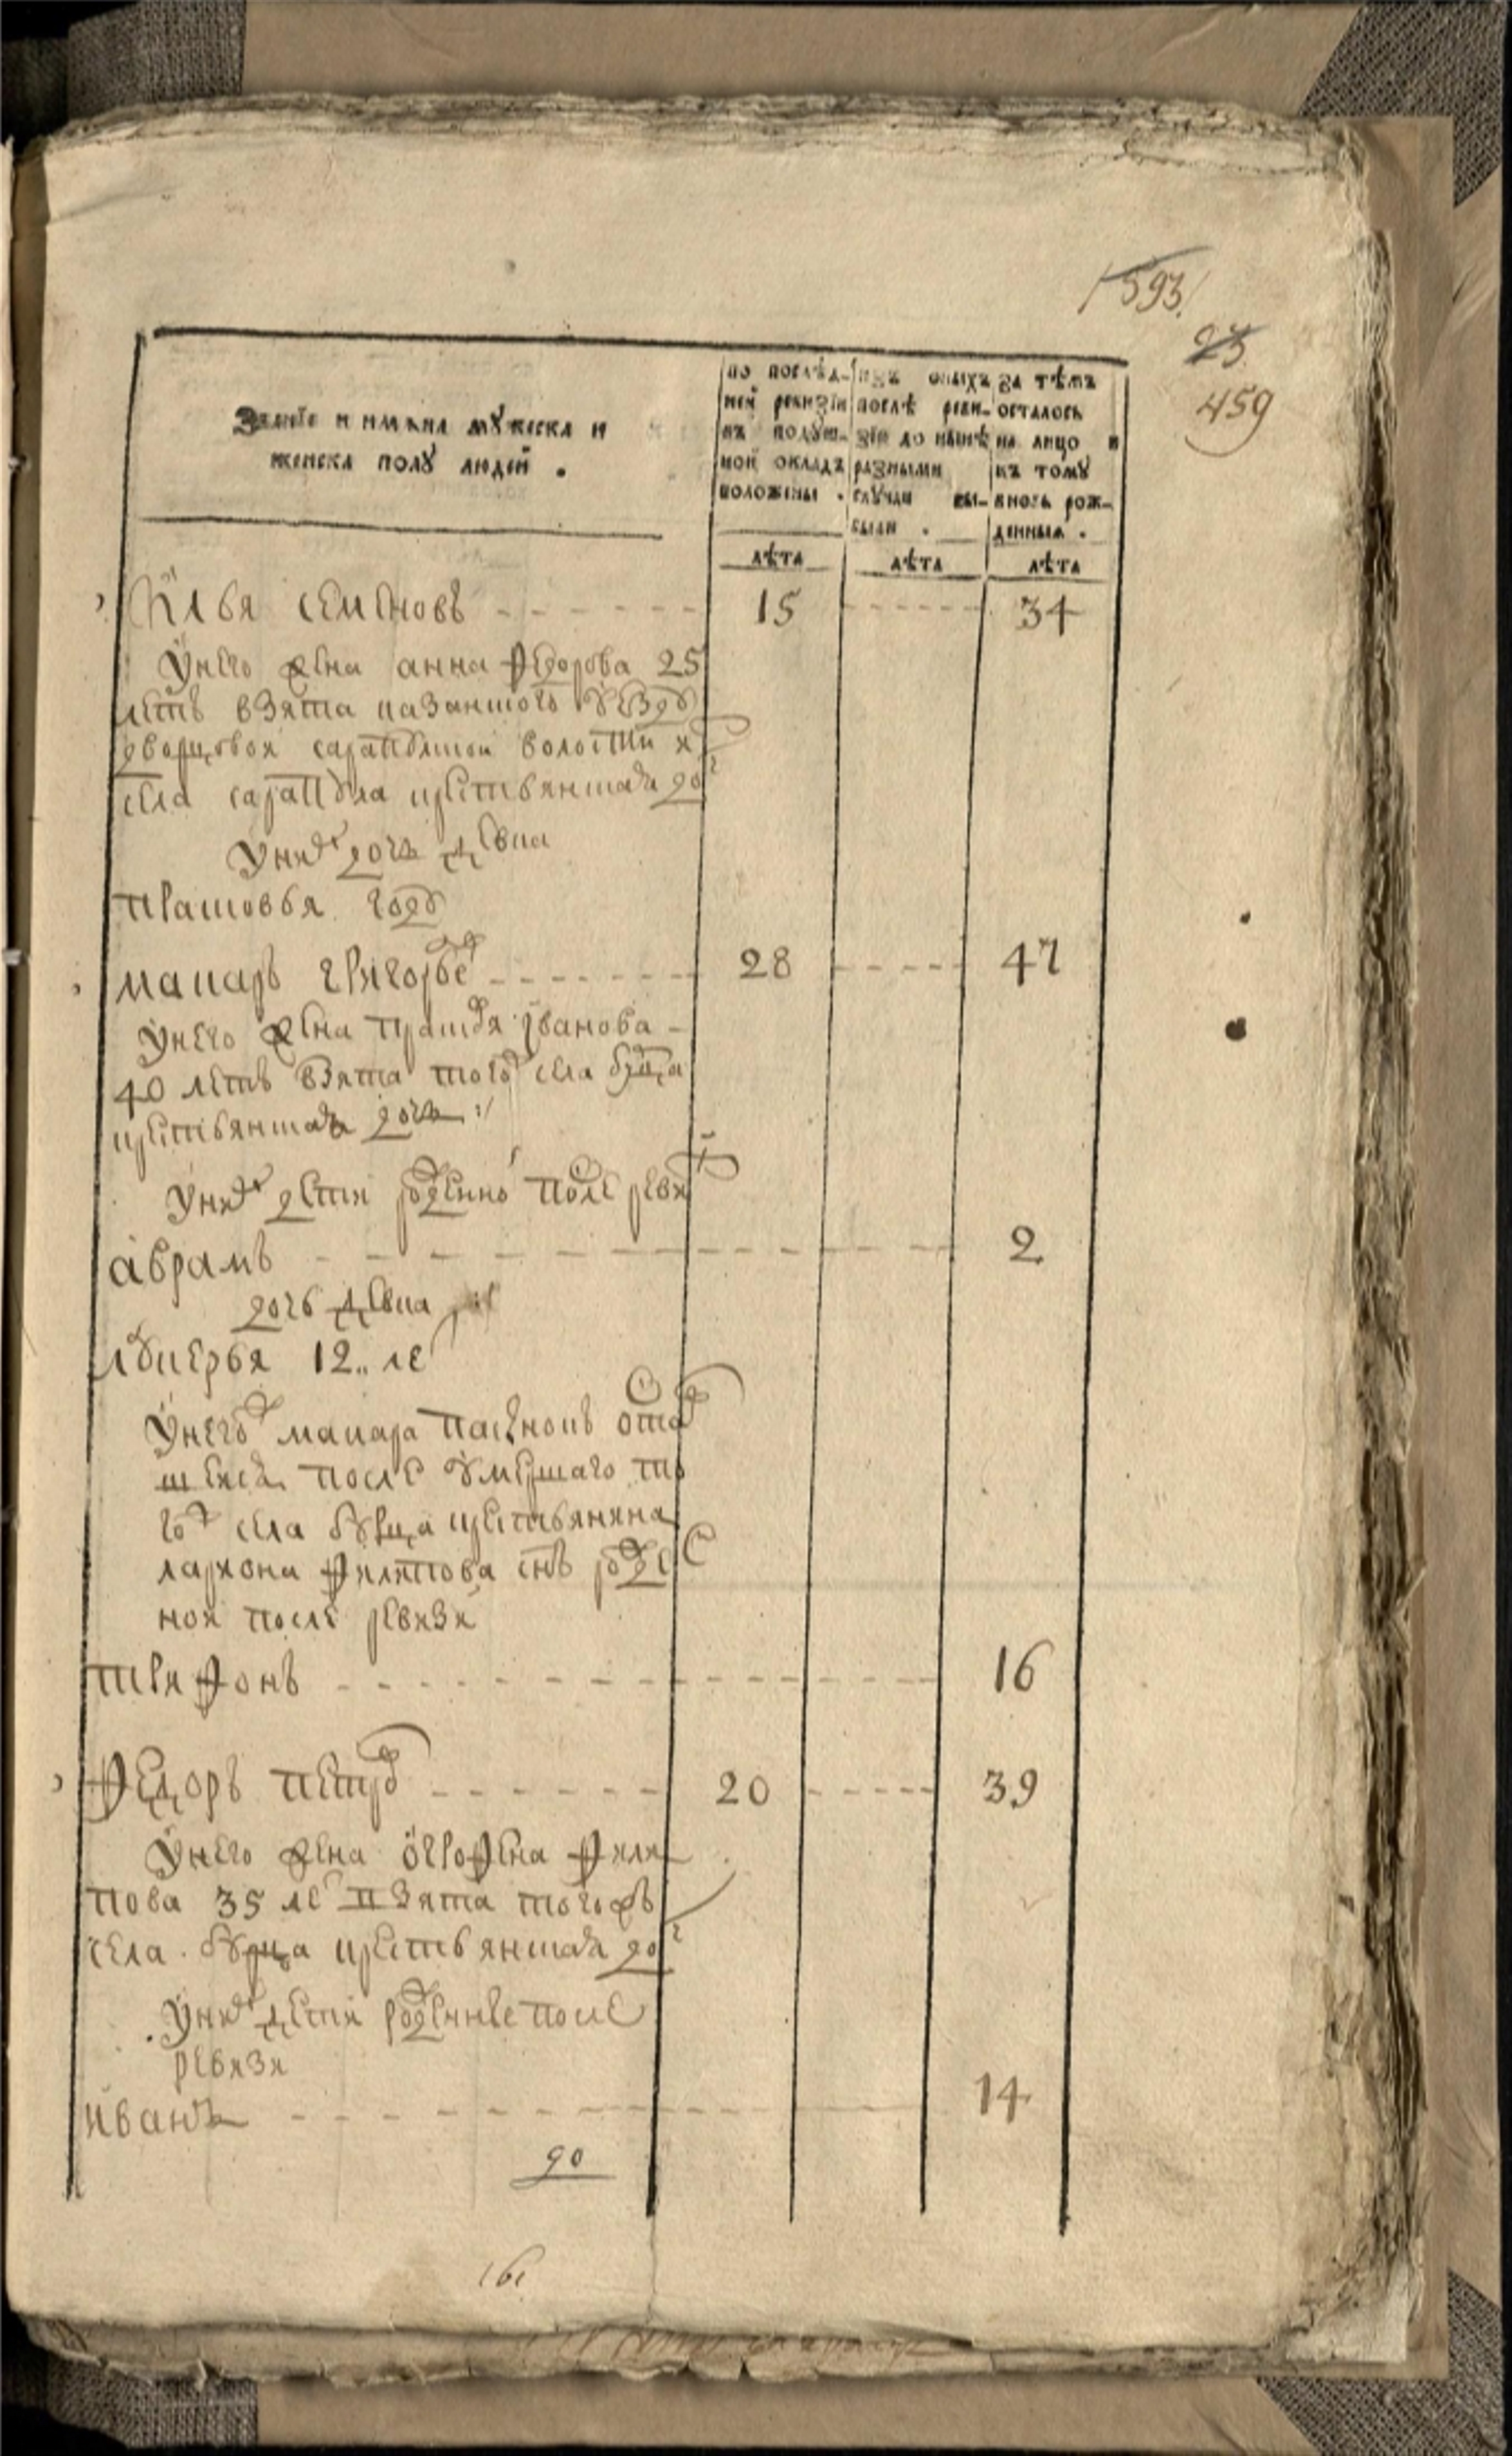 593
23
459
Званїе и имѧна мꙋжеска и
женска полꙋ людей .
по послѣд-
ней ревизїи
въ подуш-
ной окладъ
положены .
изъ оныхъ
послѣ реви-
зїи до нынѣ
разными
случаи вы-
были .
За тѣмъ
осталось
на лицо и
къ тому
вновь рож-
денныя .
лѣта
лѣта
лѣта
Илья семеновъ 15 34
Унего жена анна Федорова 25
летъ взята казанского уезду
дворцовои сарапульскои волости
села сарапула крестьянская до
Уних дочь девка
прасковья году
макаръ григорье 28 47
Унего жена Иванова
40 летъ взята того села
крестьянская дочь
Уних дети после реви
аврамъ 2
дочь девка
лукерья 12 ле
Унего макара пасынокъ оста
после умершаго то
го села крестьянина
лариона Филипова снъ
ной после ревизи
трифонъ 16
Федоръ петро 20 39
Унего жена Фили
пова 35 ле взята тогожъ
села крестьянская до
Уних дети рожденные после
ревизи
иванъ 14
90